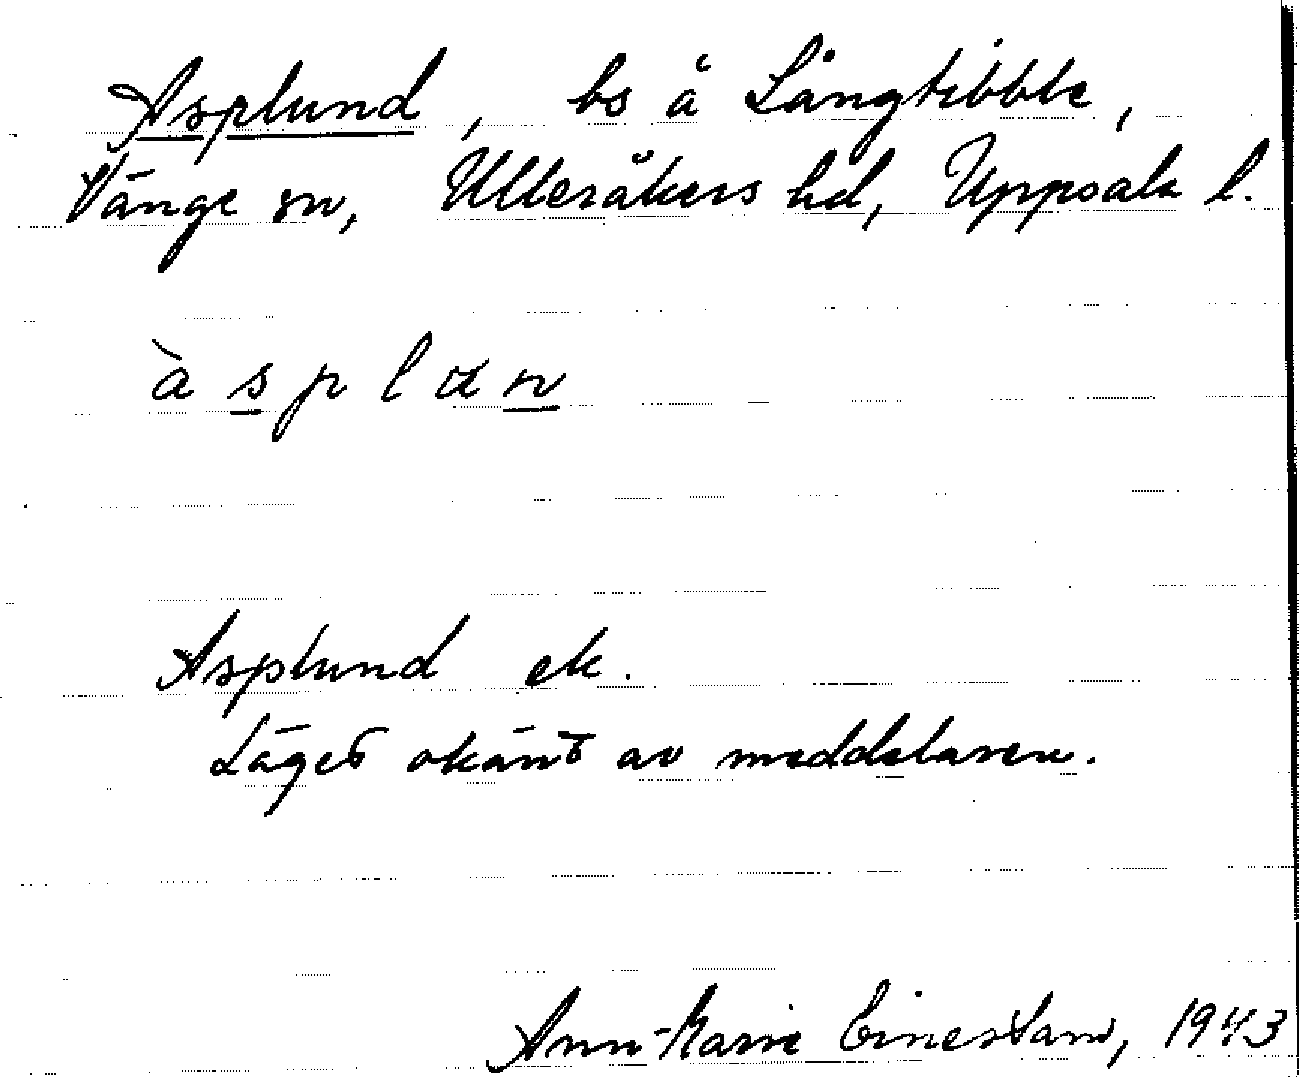 Asplund, bs å Långtibble,
Vänge sn, Ulleråkers hd, Uppsala l.
à s p l α n
Asplund ek.
Läget okänt av meddelaren.
Ann-Marie Einestam, 1943